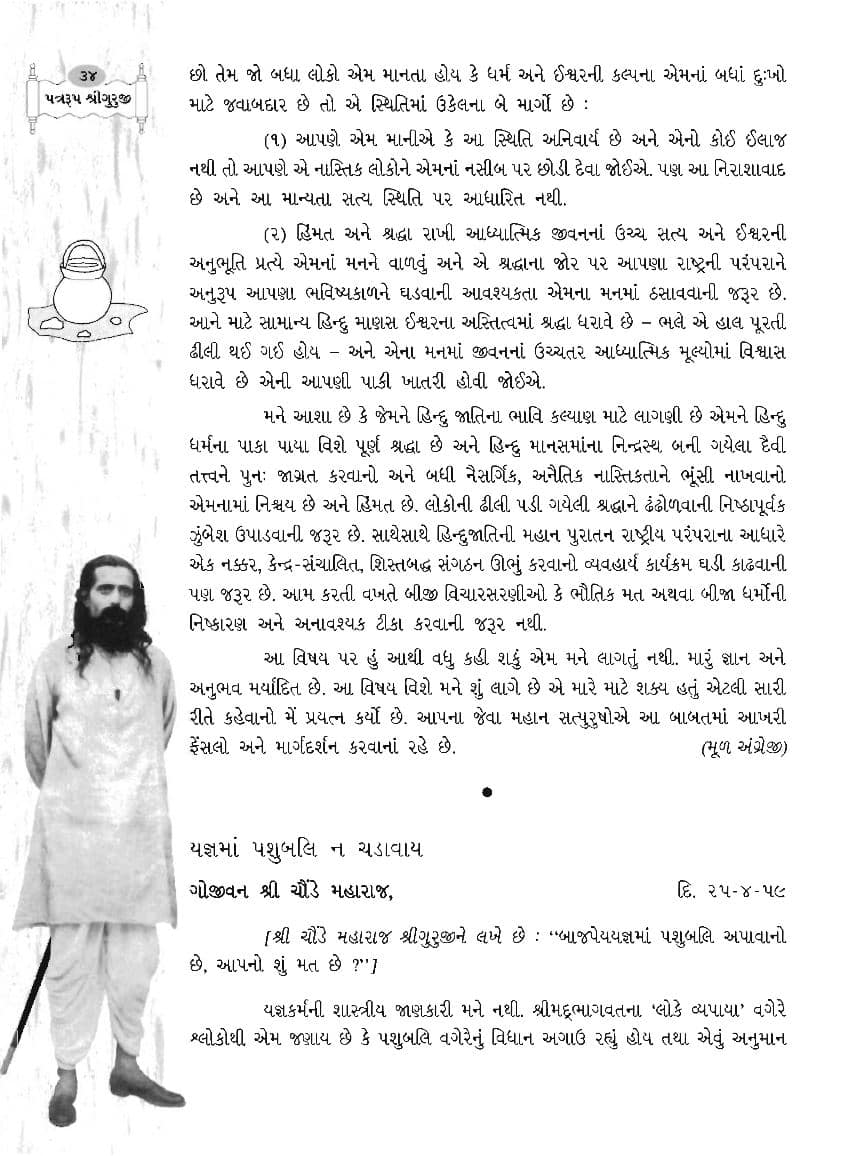 ૩૪
પત્રરૂપ શ્રીગુરુજી
છો તેમ જો બધા લોકો એમ માનતા હોય કે ધર્મ અને ઈશ્વરની કલ્પના એમનાં બધાં દુઃખો
માટે જવાબદાર છે તો એ સ્થિતિમાં ઉકેલના બે માર્ગો છે :
(૧) આપણે એમ માનીએ કે આ સ્થિતિ અનિવાર્ય છે અને એનો કોઈ ઈલાજ
નથી તો આપણે એ નાસ્તિક લોકોને એમનાં નસીબ પર છોડી દેવા જોઈએ. પણ આ નિરાશાવાદ
છે અને આ માન્યતા સત્ય સ્થિતિ પર આધારિત નથી.
(૨) હિંમત અને શ્રદ્ધા રાખી આધ્યાત્મિક જીવનનાં ઉચ્ચ સત્ય અને ઈશ્વરની
અનુભૂતિ પ્રત્યે એમનાં મનને વાળવું અને એ શ્રદ્ધાના જોર પર આપણા રાષ્ટ્રની પરંપરાને
અનુરૂપ આપણા ભવિષ્યકાળને ઘડવાની આવશ્યકતા એમના મનમાં ઠસાવવાની જરૂર છે.
આને માટે સામાન્ય હિન્દુ માણસ ઈશ્વરના અસ્તિત્વમાં શ્રદ્ધા ધરાવે છે – ભલે એ હાલ પૂરતી
ઢીલી થઈ ગઈ હોય – અને એના મનમાં જીવનનાં ઉચ્ચતર આધ્યાત્મિક મૂલ્યોમાં વિશ્વાસ
ધરાવે છે એની આપણી પાકી ખાતરી હોવી જોઈએ.
મને આશા છે કે જેમને હિન્દુ જાતિના ભાવિ કલ્યાણ માટે લાગણી છે એમને હિન્દુ
ધર્મના પાકા પાયા વિશે પૂર્ણ શ્રદ્ધા છે અને હિન્દુ માનસમાંના નિન્દ્રસ્થ બની ગયેલા દૈવી
તત્ત્વને પુનઃ જાગ્રત કરવાનો અને બધી નૈસર્ગિક, અનૈતિક નાસ્તિકતાને ભૂંસી નાખવાનો
એમનામાં નિશ્ચય છે અને હિંમત છે. લોકોની ઢીલી પડી ગયેલી શ્રદ્ધાને ઢંઢોળવાની નિષ્ઠાપૂર્વક
ઝુંબેશ ઉપાડવાની જરૂર છે. સાથેસાથે હિન્દુજાતિની મહાન પુરાતન રાષ્ટ્રીય પરંપરાના આધારે
એક નક્કર, કેન્દ્ર-સંચાલિત, શિસ્તબદ્ધ સંગઠન ઊભું કરવાનો વ્યવહાર્ય કાર્યક્રમ ઘડી કાઢવાની
પણ જરૂર છે. આમ કરતી વખતે બીજી વિચારસરણીઓ કે ભૌતિક મત અથવા બીજા ધર્મોની
નિષ્કારણ અને અનાવશ્યક ટીકા કરવાની જરૂર નથી.
આ વિષય પર હું આથી વધુ કહી શકું એમ મને લાગતું નથી. મારું જ્ઞાન અને
અનુભવ મર્યાદિત છે. આ વિષય વિશે મને શું લાગે છે એ મારે માટે શક્ય હતું એટલી સારી
રીતે કહેવાનો મેં પ્રયત્ન કર્યો છે. આપના જેવા મહાન સત્પુરુષોએ આ બાબતમાં આખરી
ફેંસલો અને માર્ગદર્શન કરવાનાં રહે છે. (મૂળ અંગ્રેજી)
•
યજ્ઞમાં પશુબલિ ન ચડાવાય
ગોજીવન શ્રી ચૌંડે મહારાજ, દિ. ૨૫-૪-૫૯
[શ્રી ચૌંડે મહારાજ શ્રીગુરુજીને લખે છે : ‘‘બાજપેયયજ્ઞમાં પશુબલિ અપાવાનો
છે, આપનો શું મત છે ?’’]
યજ્ઞકર્મની શાસ્ત્રીય જાણકારી મને નથી. શ્રીમદ્ભાગવતના ‘લોકે વ્યપાયા’ વગેરે
શ્લોકોથી એમ જણાય છે કે પશુબલિ વગેરેનું વિધાન અગાઉ રહ્યું હોય તથા એવું અનુમાન